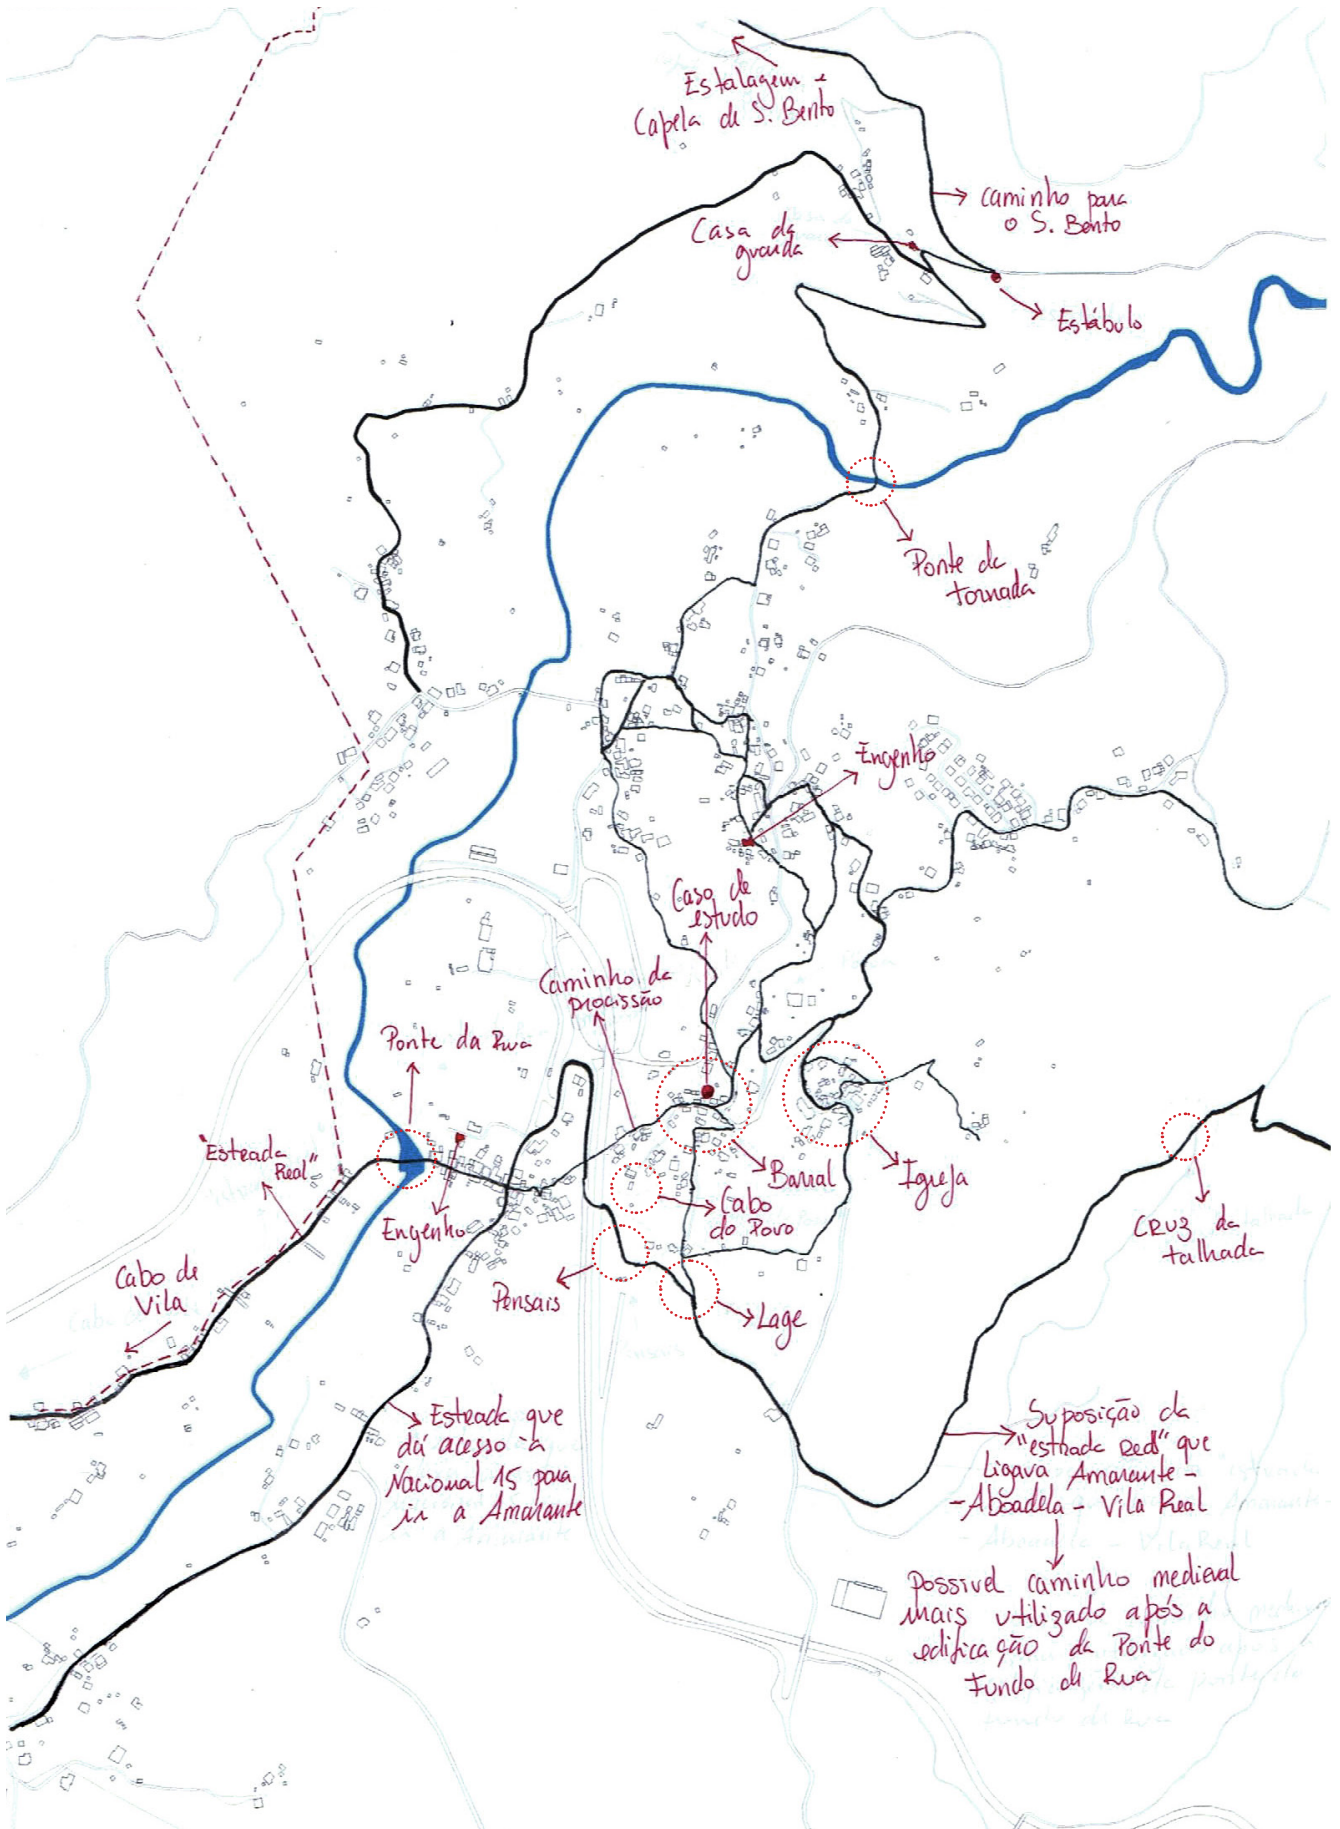 Estalagem e
Capela de S. Bento
caminho para
o S. Bento
Casa da
guarda
Estábulo
Ponte da
tornada
Engenho
Caso de
estudo
Caminho da
procissão
Ponte da Rua
"Estrada
Real"
Engenho
Barral
Igreja
Cabo
do Povo
CRUZ da
talhada
Cabo de
Vila
Pensais
Lage
Estrada que
dá acesso à
Nacional 15 para
ir a Amarante
Suposição da
"estrada Real" que
Ligava Amarante -
- Aboadela - Vila Real
Possivel caminho medieval
mais utilizado após a
edificação da Ponte do
Fundo de Rua